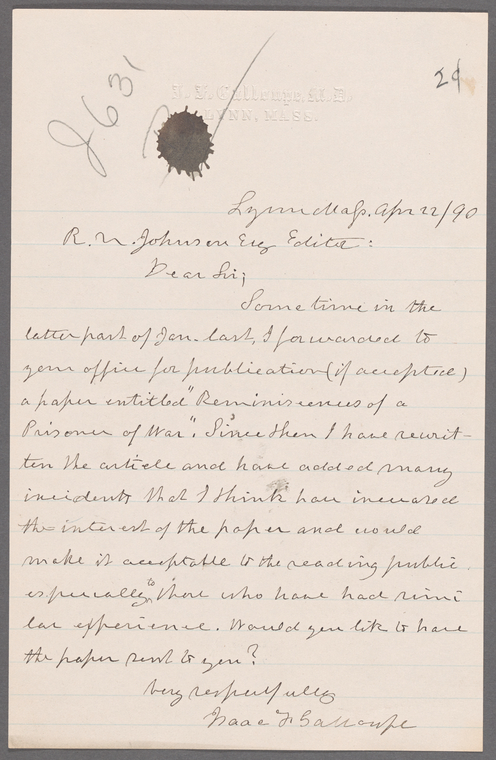 J631
29
I. F. Galloupe, M.D.
LYNN, MASS.
Lynn Mass. Apr 22/90
R. U. Johnson Esq Editor:
Dear Sir;
Sometime in the
latter part of Jan. last, I forwarded to
your office for publication (if accepted)
a paper entitled "Reminiscences of a
Prisoner of War". Since then I have rewrit-
ten the article and have added many
incidents that I think have increased
the interest of the paper and would
make it acceptable to the reading public,
especially to those who have had simi
lar experience. Would you like to have
the paper sent to you?
Very respectfully
Isaac F Galloupe